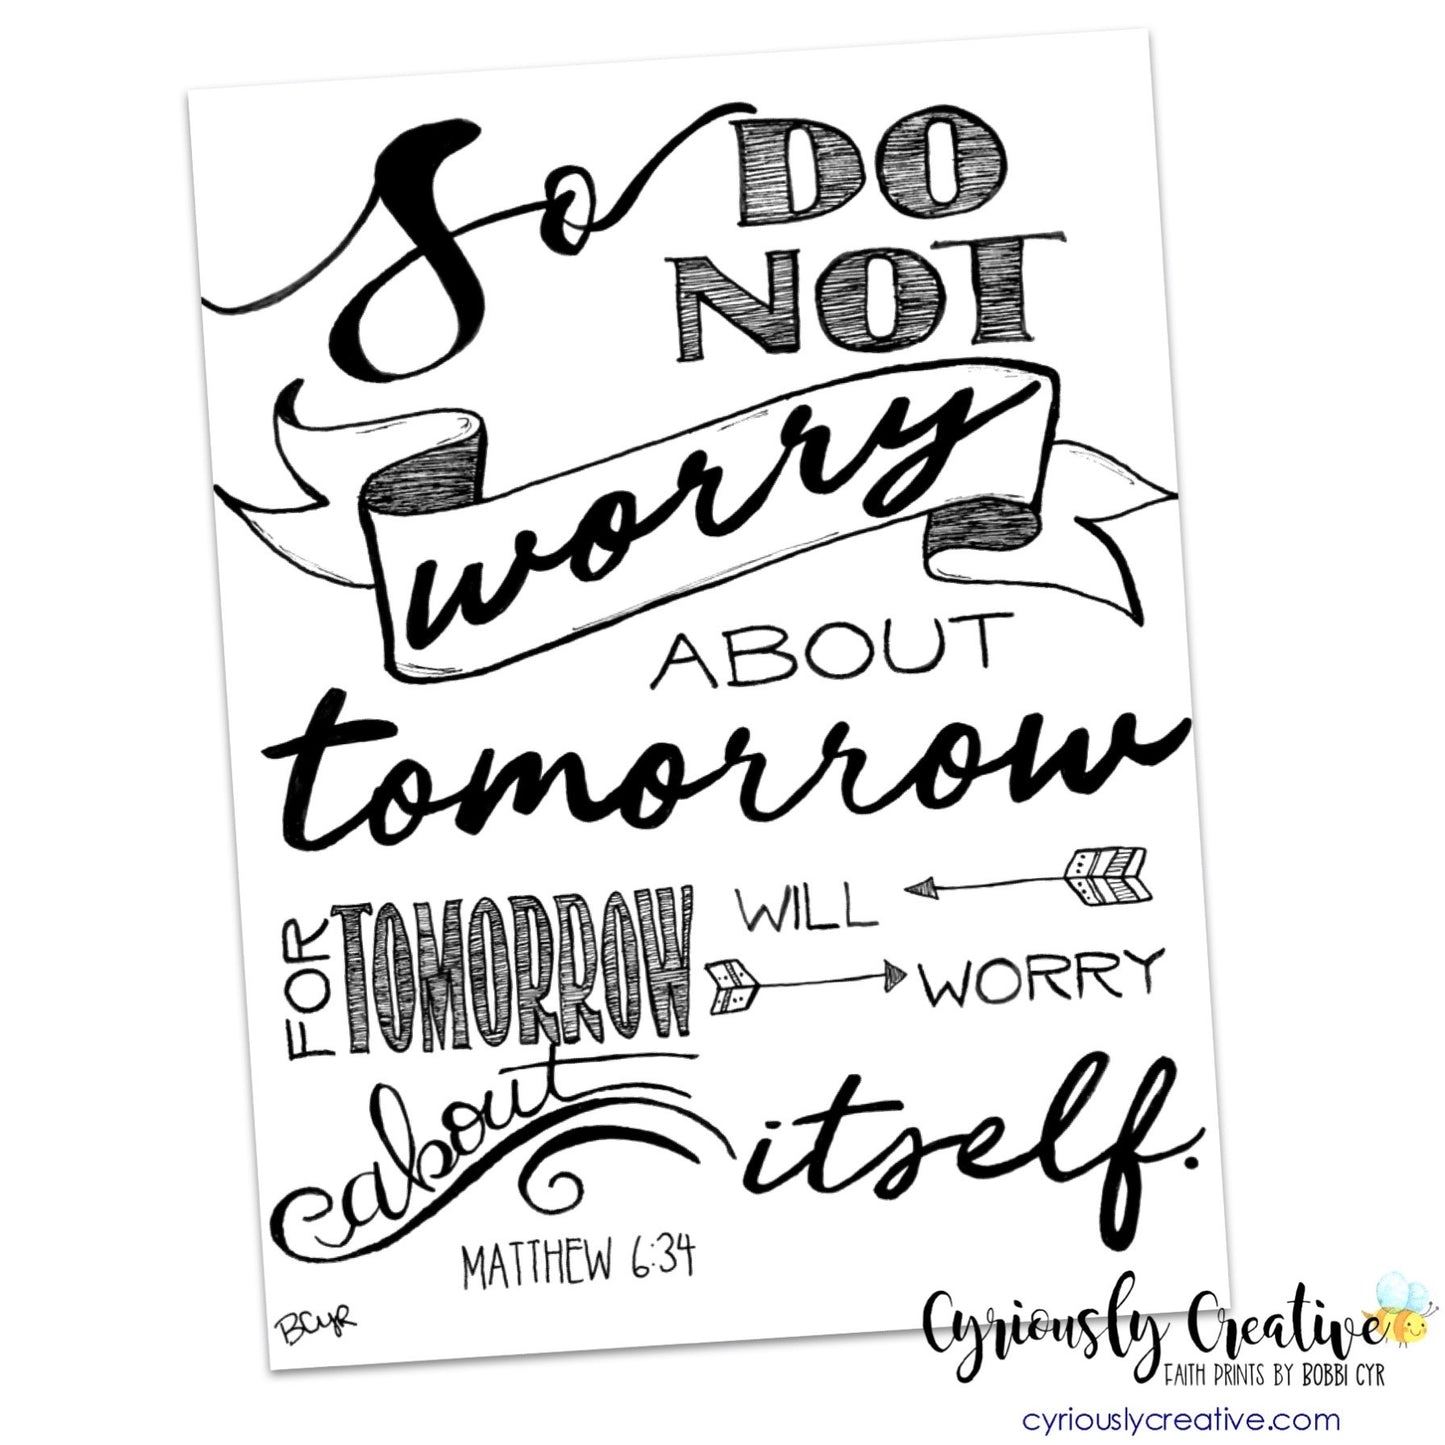 So DO
NOT
worry
ABOUT
tomorrow
FOR TOMORROW WILL
WORRY
about itself.
MATTHEW 6:34
BCyR
Cyriously Creative
FAITH PRINTS BY BOBBI CYR
cyriouslycreative.com